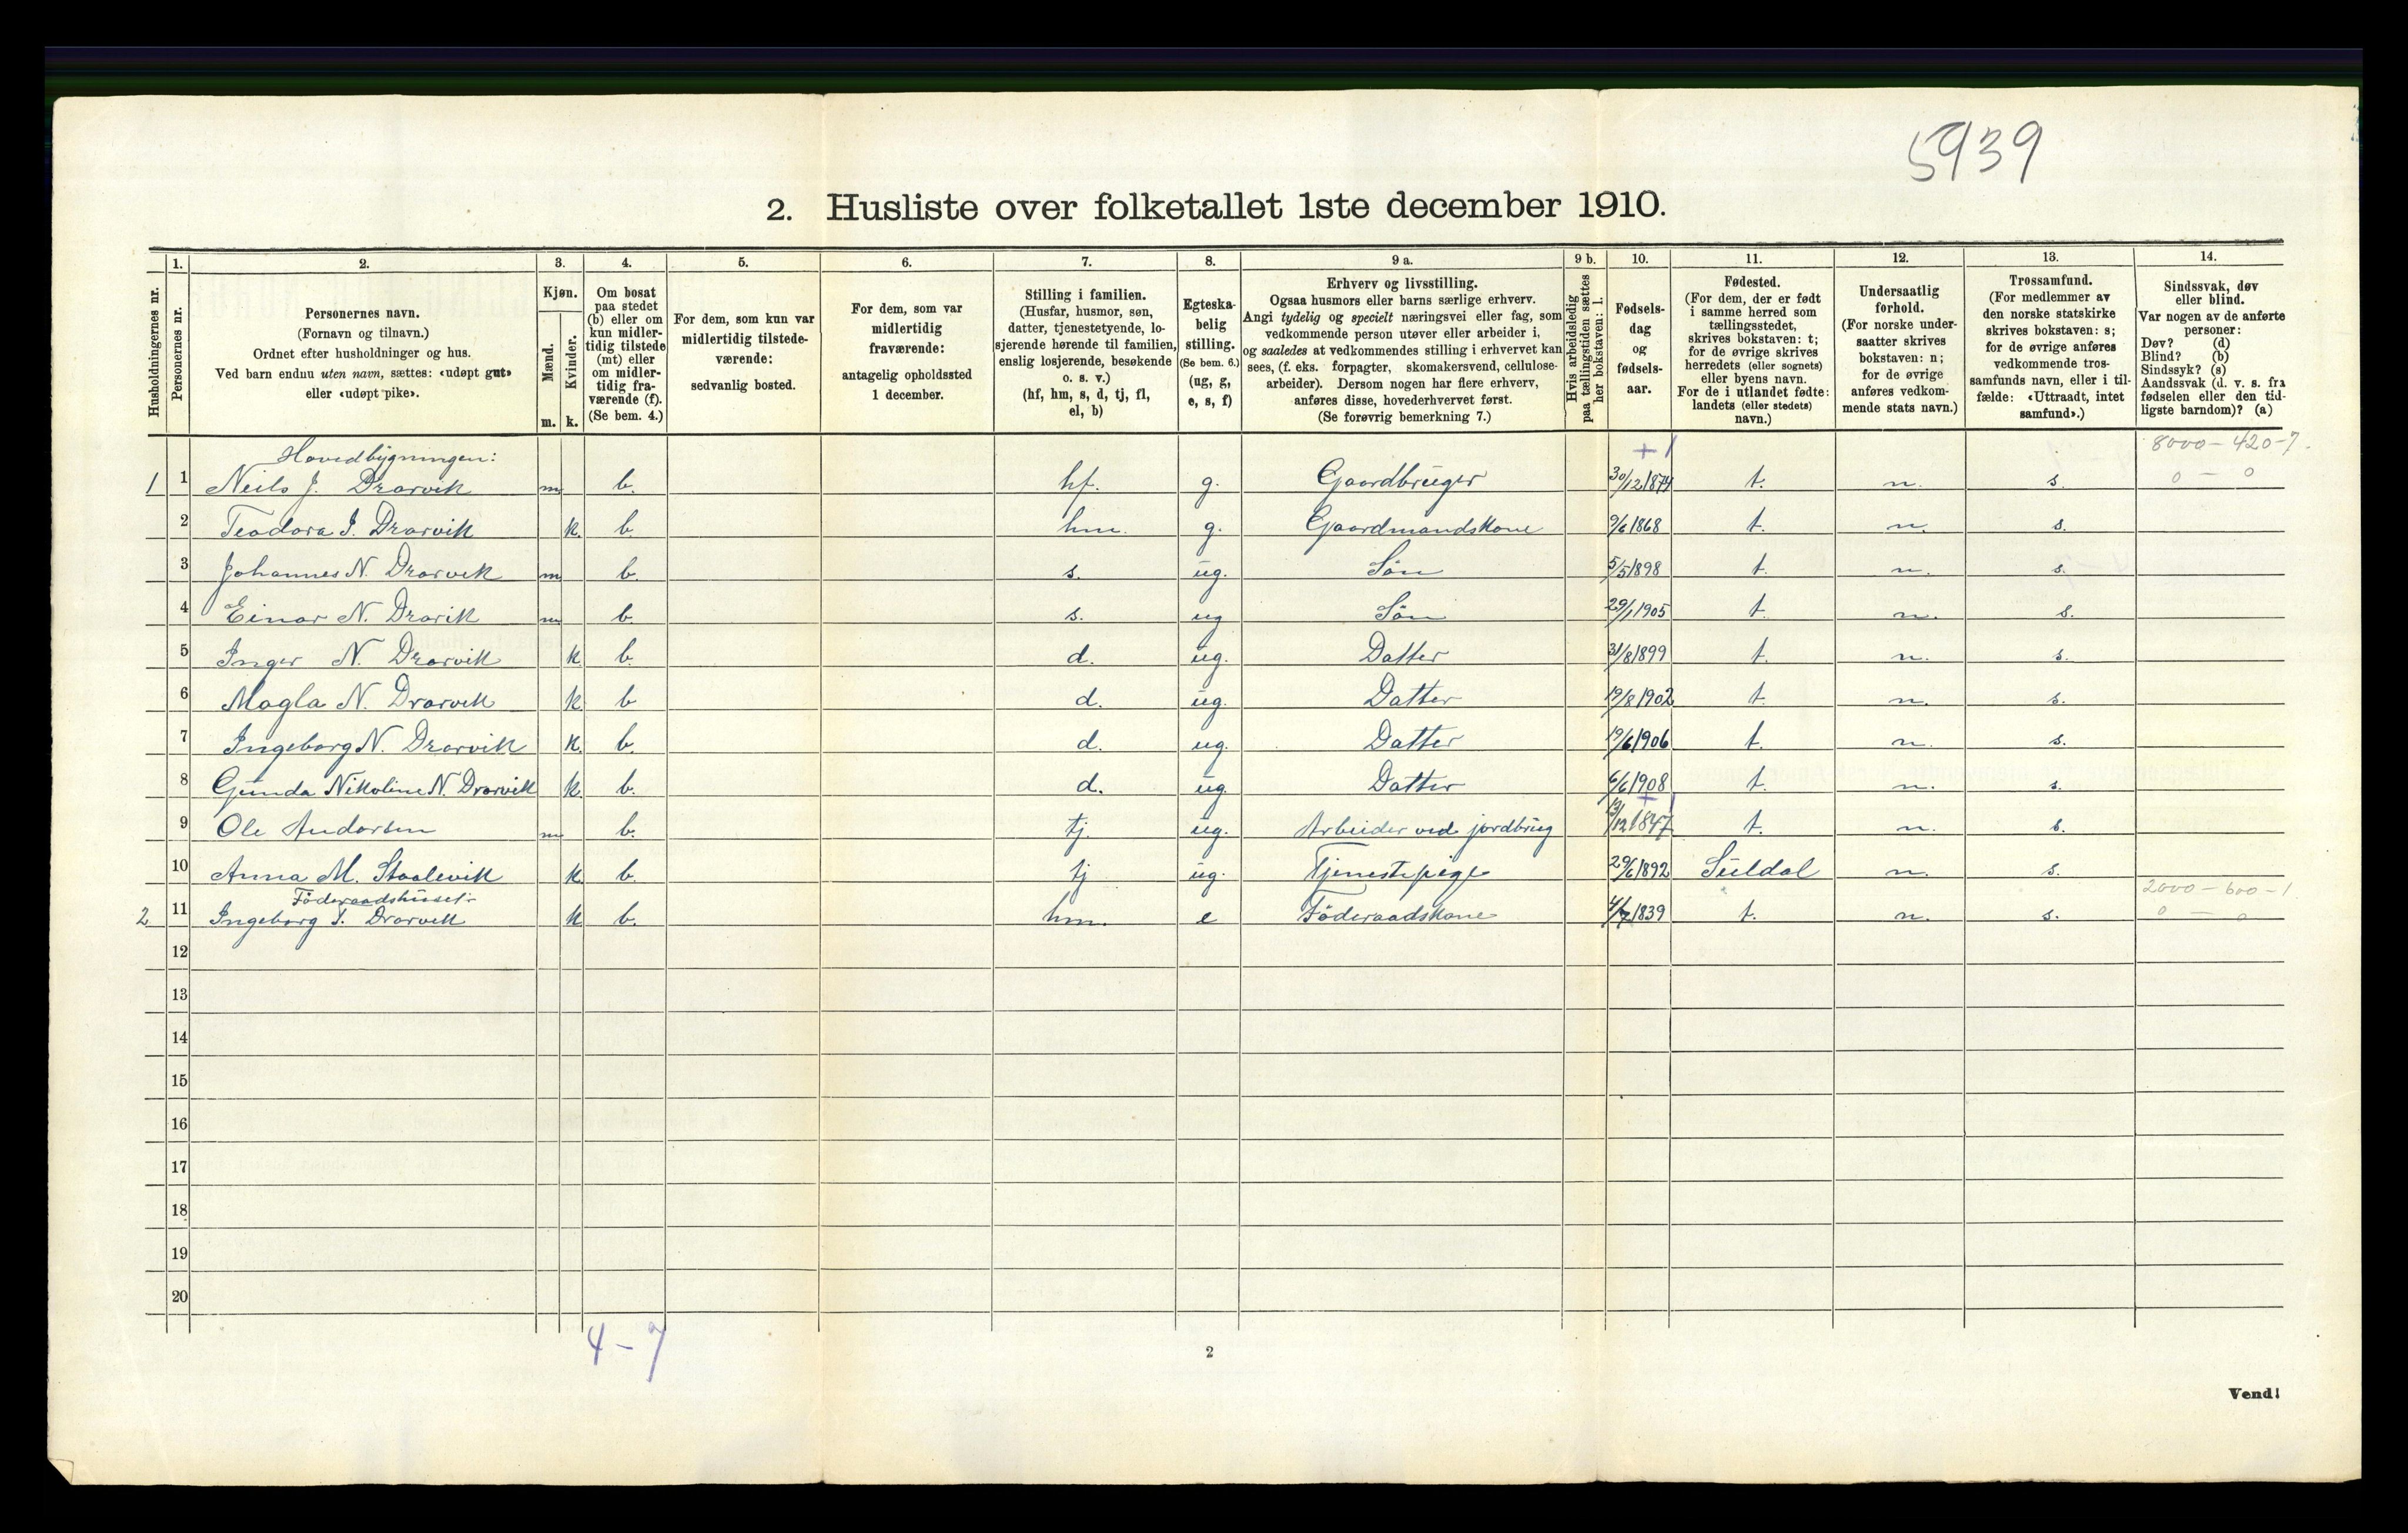 5939
2. Husliste over folketallet 1ste december 1910.
Husholdningernes nr.
1.
Personernes nr.
2.
Personernes navn.
(Fornavn og tilnavn.)
Ordnet efter husholdninger og hus.
Ved barn endnu uten navn, sættes: «udøpt gut»
eller «udøpt pike».
3.
Kjøn.
Mænd.
Kvinder.
m. k.
4.
Om bosat
paa stedet
(b) eller om
kun midler-
tidig tilstede
(mt) eller
om midler-
tidig fra-
værende (f).
(Se bem. 4.)
5.
For dem, som kun var
midlertidig tilstede-
værende:
sedvanlig bosted.
6.
For dem, som var
midlertidig
fraværende:
antagelig opholdssted
1 december.
7.
Stilling i familien.
(Husfar, husmor, søn,
datter, tjenestetyende, lo-
sjerende hørende til familien,
enslig losjerende, besøkende
o. s. v.)
(hf, hm, s, d, tj, fl,
el, b)
8.
Egteska-
belig
stilling.
(Se bem. 6.)
(ug, g,
e, s, f)
9 a.
Erhverv og livsstilling.
Ogsaa husmors eller barns særlige erhverv.
Angi tydelig og specielt næringsvei eller fag, som
vedkommende person utøver eller arbeider i,
og saaledes at vedkommendes stilling i erhvervet kan
sees, (f. eks. forpagter, skomakersvend, cellulose-
arbeider). Dersom nogen har flere erhverv,
anføres disse, hovederhvervet først.
(Se forøvrig bemerkning 7.)
9 b.
Hvis arbeidsledig
paa tællingstiden sættes
her bokstaven: l.
10.
Fødsels-
dag
og
fødsels-
aar.
11.
Fødested.
(For dem, der er født
i samme herred som
tællingsstedet,
skrives bokstaven: t;
for de øvrige skrives
herredets (eller sognets)
eller byens navn.
For de i utlandet fødte:
landets (eller stedets)
navn.)
12.
Undersaatlig
forhold.
(For norske under-
saatter skrives
bokstaven: n;
for de øvrige
anføres vedkom-
mende stats navn.)
13.
Trossamfund.
(For medlemmer av
den norske statskirke
skrives bokstaven: s;
for de øvrige anføres
vedkommende tros-
samfunds navn, eller i til-
fælde: «Uttraadt, intet
samfund».)
14.
Sindssvak, døv
eller blind.
Var nogen av de anførte
personer:
Døv? (d)
Blind? (b)
Sindssyk? (s)
Aandssvak (d. v. s. fra
fødselen eller den tid-
ligste barndom)? (a)
Hovedbygningen: + 1 8000 - 420 - 7.
1 1 Neils J. Drarvik m b. hf. g. Gaardbruger 30/12 1874 t. n. s. 0 - 0
2 Teodora I. Drarvik k. b. hm. g. Gaardmandskone 9/6 1868 t. n. s.
3 Johannes N. Drarvik m b. s. ug. Søn 5/5 1898 t. n. s.
4 Einar N. Drarik m b. s. ug Søn 29/1 1905 t. n. s.
5 Inger N. Drarvik k. b. d. ug. Datter 31/8 1899 t. n. s.
6 Magla N. Drarvik k. b d. ug. Datter 19/8 1902 t. n. s.
7 Ingeborg N. Drarvik k. b. d. ug. Datter 19/6 1906 t. n. s.
8 Gunda Nikoline N. Drarvik k. b. d. ug. Datter 6/6 1908 t. n. s.
+ 1
9 Ole Andersen m b. tj. ug. Arbeider ved jordbrug 13/12 1847 t. n. s.
10 Anna M. Staalevik k. b. tj ug. Tjenestepige 29/6 1892 Suldal n. s.
Føderaadshuset: 2000 - 600 - 1
2 11 Ingeborg T. Drarvik k b. hm. e Føderaadskone 4/7 1839 t. n. s. 0 - 0
12
13
14
15
16
17
18
19
20
4 - 7
2
Vend!